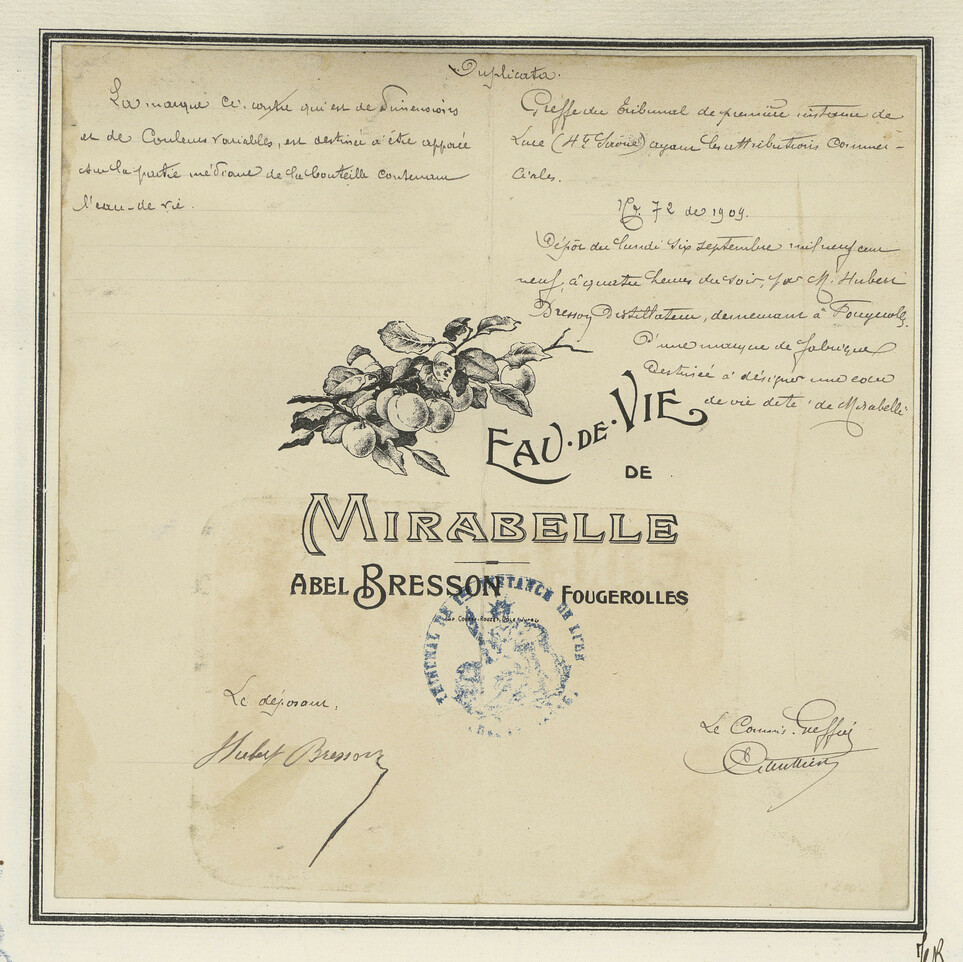 Duplicata.
La marque ci-contre qui est de Dimensions
et de Couleurs variables, est destinée à être apposée
sur la partie médiane de la bouteille contenant
l'eau-de vie.
Greffe du Tribunal de première instance de
Lure (Hte Saône) ayant les attributions Commer-
ciales.
No 72 de 1909.
Dépôt du lundi six septembre mil neuf cent
neuf, à quatre heures du soir, par M. Hubert
Bresson Distillateur, demeurant à Fougerolles,
D'une marque de fabrique
Destinée à désigner une eau
de vie dite "de Mirabelle"
EAU-DE-VIE
DE
MIRABELLE
ABEL BRESSON FOUGEROLLES
TRIBUNAL DE 1re INSTANCE DE LURE
Le déposant,
Hubert Bresson
Le Commis. Greffier
Gauthier